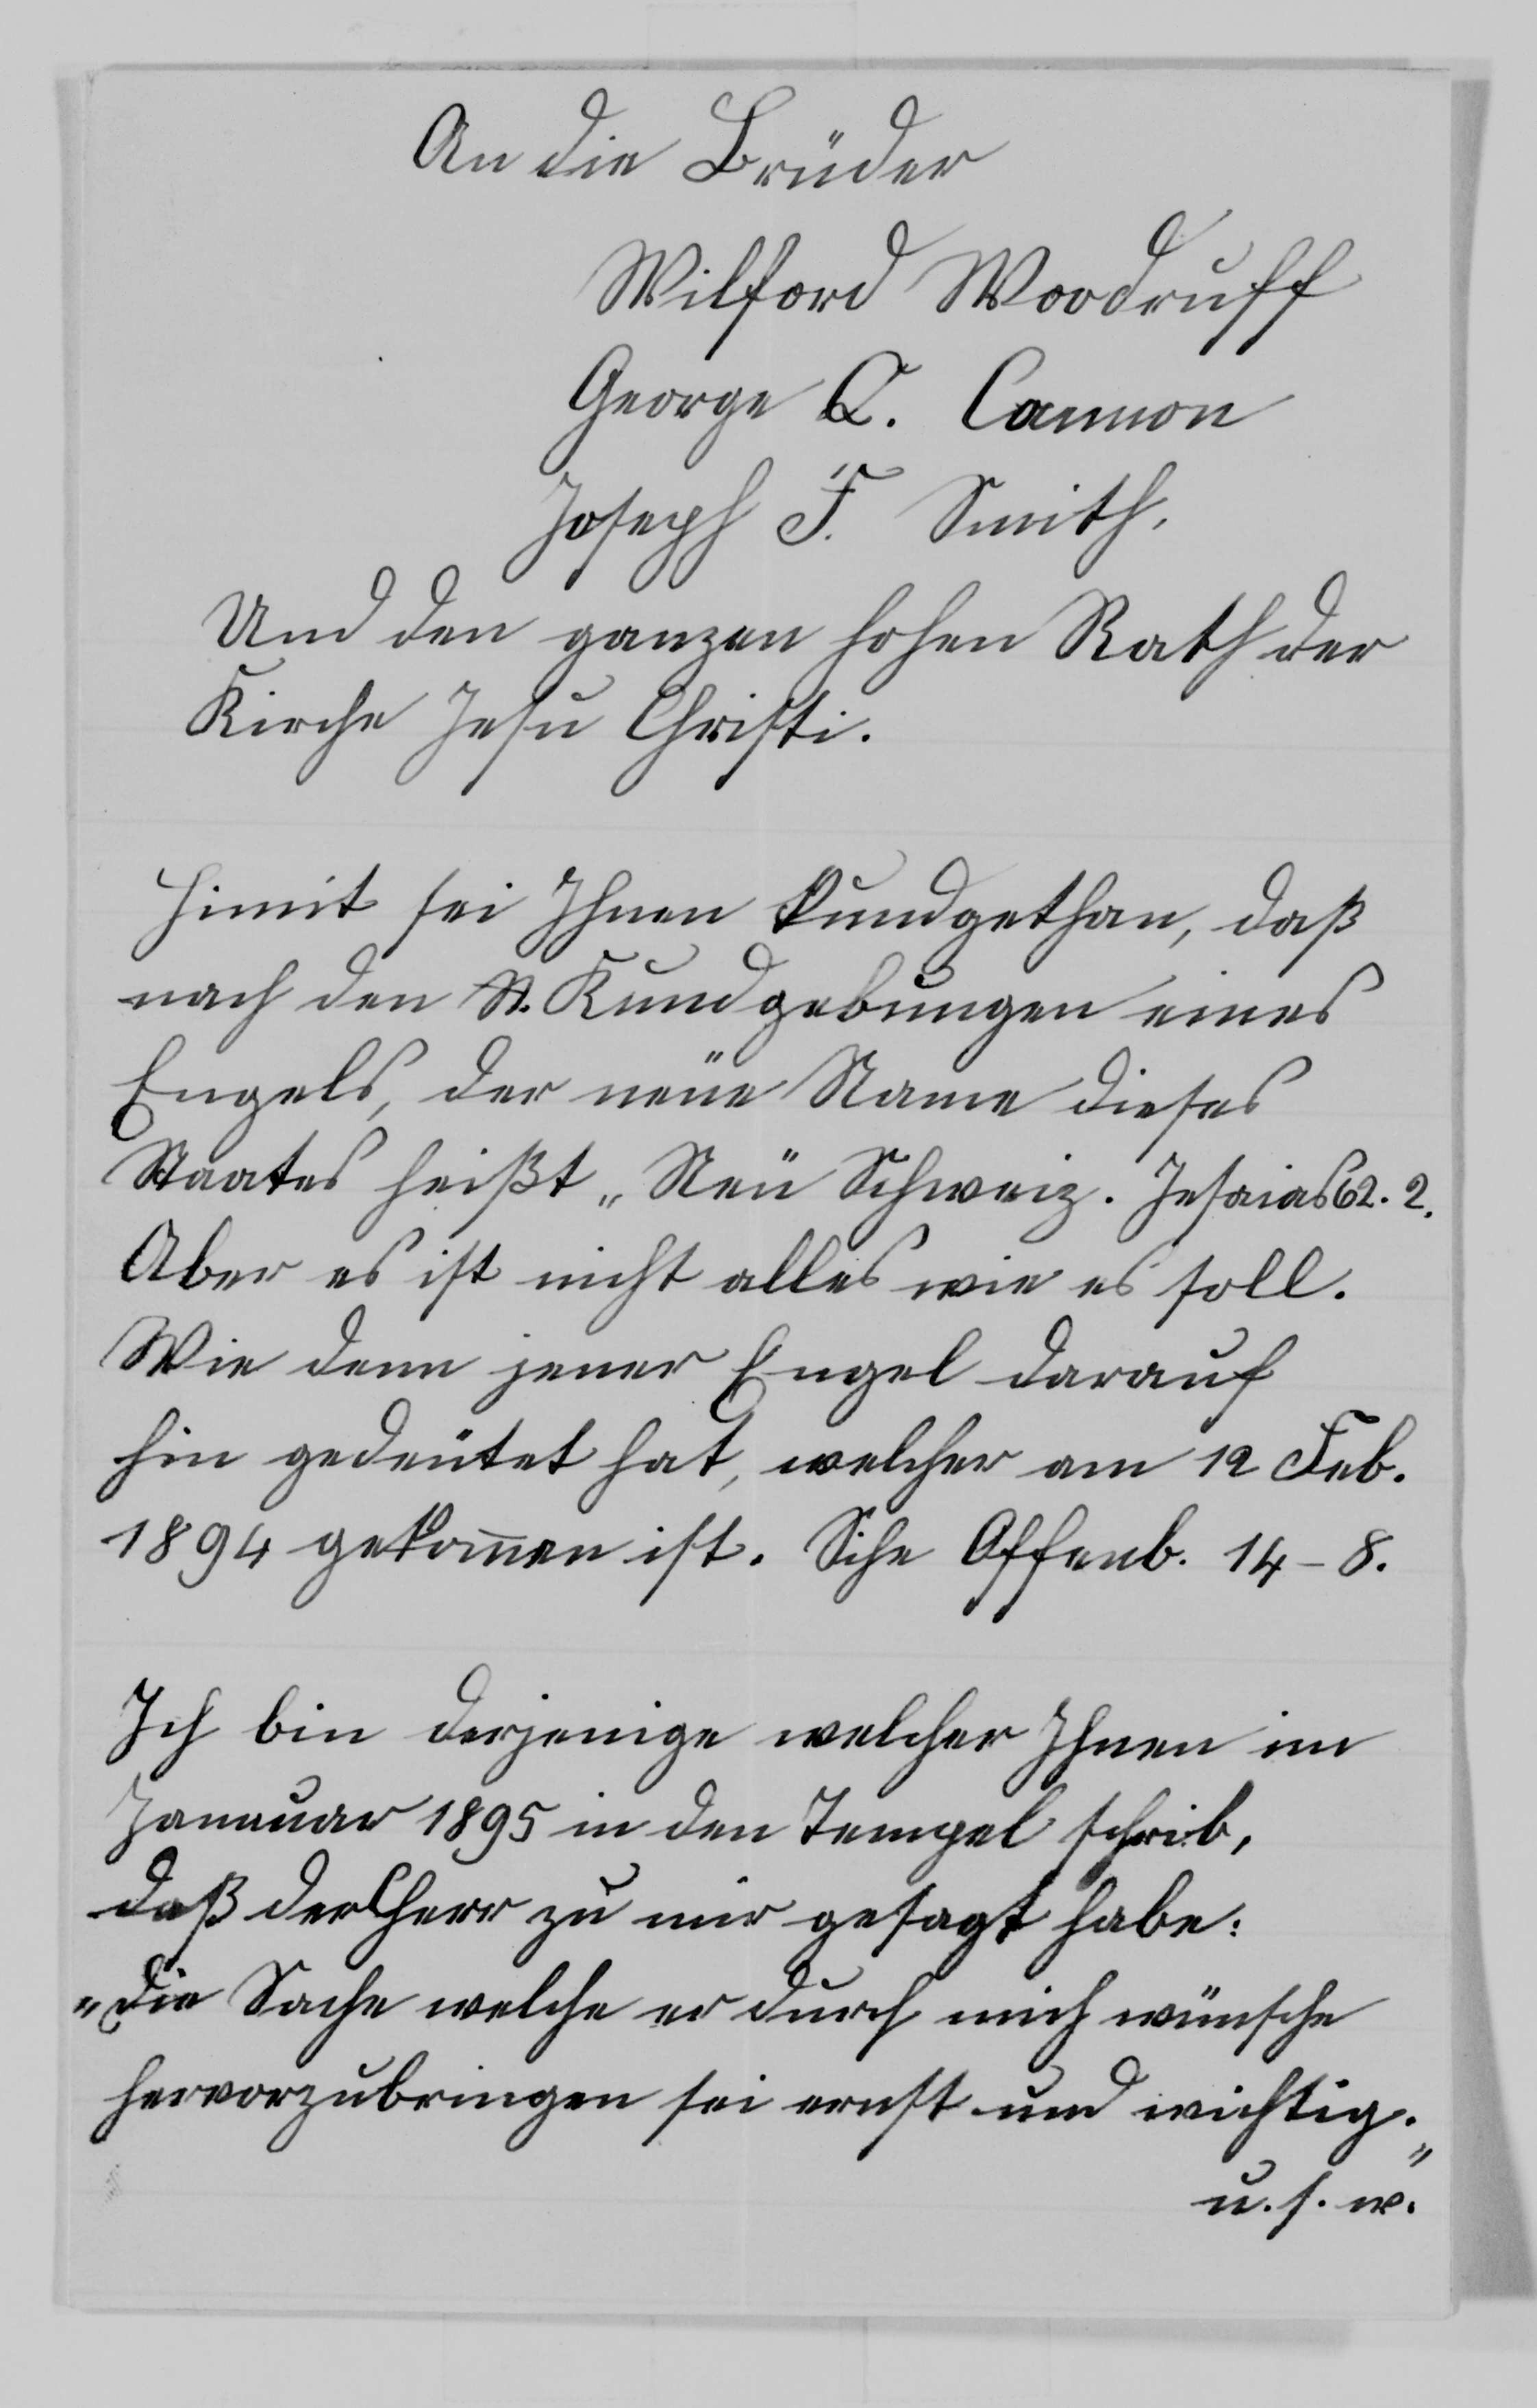 An die Brüder
Wilford Woodruff
George Q. Cannon
Joseph F. Smith.
Und den ganzen hohen Rath der
Kirche Jesu Christi.
Himit sei Ihnen kundgethan, daß
nach den St. Kundgebungen eines
Engels, der neüe Name dieses
Staates heißt „Neü Schweiz. Jesaias 62. 2.
Aber es ist nicht alles wie es soll.
Wie denn jener Engel darauf
hin gedeütet hat, welcher am 12 Feb.
1894 gekom̅en ist. Sihe Offenb. 14-8.
Ich bin derjenige welcher Ihnen im
Januar 1895 in den Tempel schrib,
daß der Herr zu mir gesagt habe:
„Die Sache welche er durch mich wünsche
hervorzubringen sei ernst und wichtig."
u. s. w.